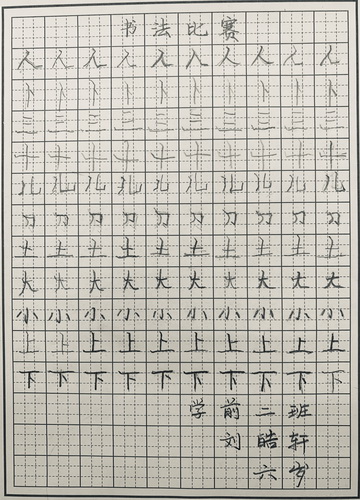 书法比赛
人人人人人人人人人人
卜卜卜卜卜卜卜卜卜卜
三三三三三三三三三三
十十十十十十十十十十
儿儿儿儿儿儿儿儿儿儿
刀刀刀刀刀刀刀刀刀刀
土土土土土土土土土土
大大大大大大大大大大
小小小小小小小小小小
上上上上上上上上上上
下下下下下下下下下下
学前二班
刘皓轩
六岁